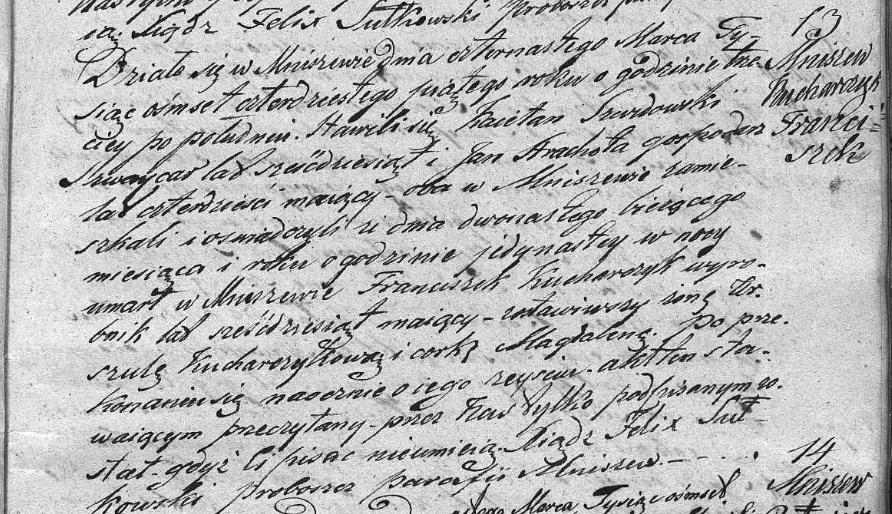 ią. Xiądz Felix Sutkowski proboszcz
13
Mniszew
Kucharczyk
Franci=
szek
Działo się w Mniszewie dnia czternastego Marca Ty-
siąc ośmset czterdziestego piątego roku o godzinie trze
ciey po południu. Stawili się Kaietan Szurdowski
Szwaycar lat sześćdziesiąt i Jan Strachota gospodarz
lat czterdzieści maiący - oba w Mniszewie zamie-
szkali i oświadczyli iż dnia dwunastego bieżącego
miesiąca i roku o godzinie jedynastey w nocy
umarł w Mniszewie Franciszek Kucharczyk wyro-
bnik lat sześćdziesiąt maiący - zostawiwszy żonę Ur-
szulę Kucharczykową i corkę Magdalenę. Po prze-
konaniu się naocznie o iego zeyściu - akt ten sta-
waiącym przeczytany - przez Nas tylko podpisanym zo-
stał gdyż Ci pisać nieumieią. Xiądz Felix Sut-
kowski proboszcz parafii Mniszew
14
Mniszew
Marca Tysiąc ośmset